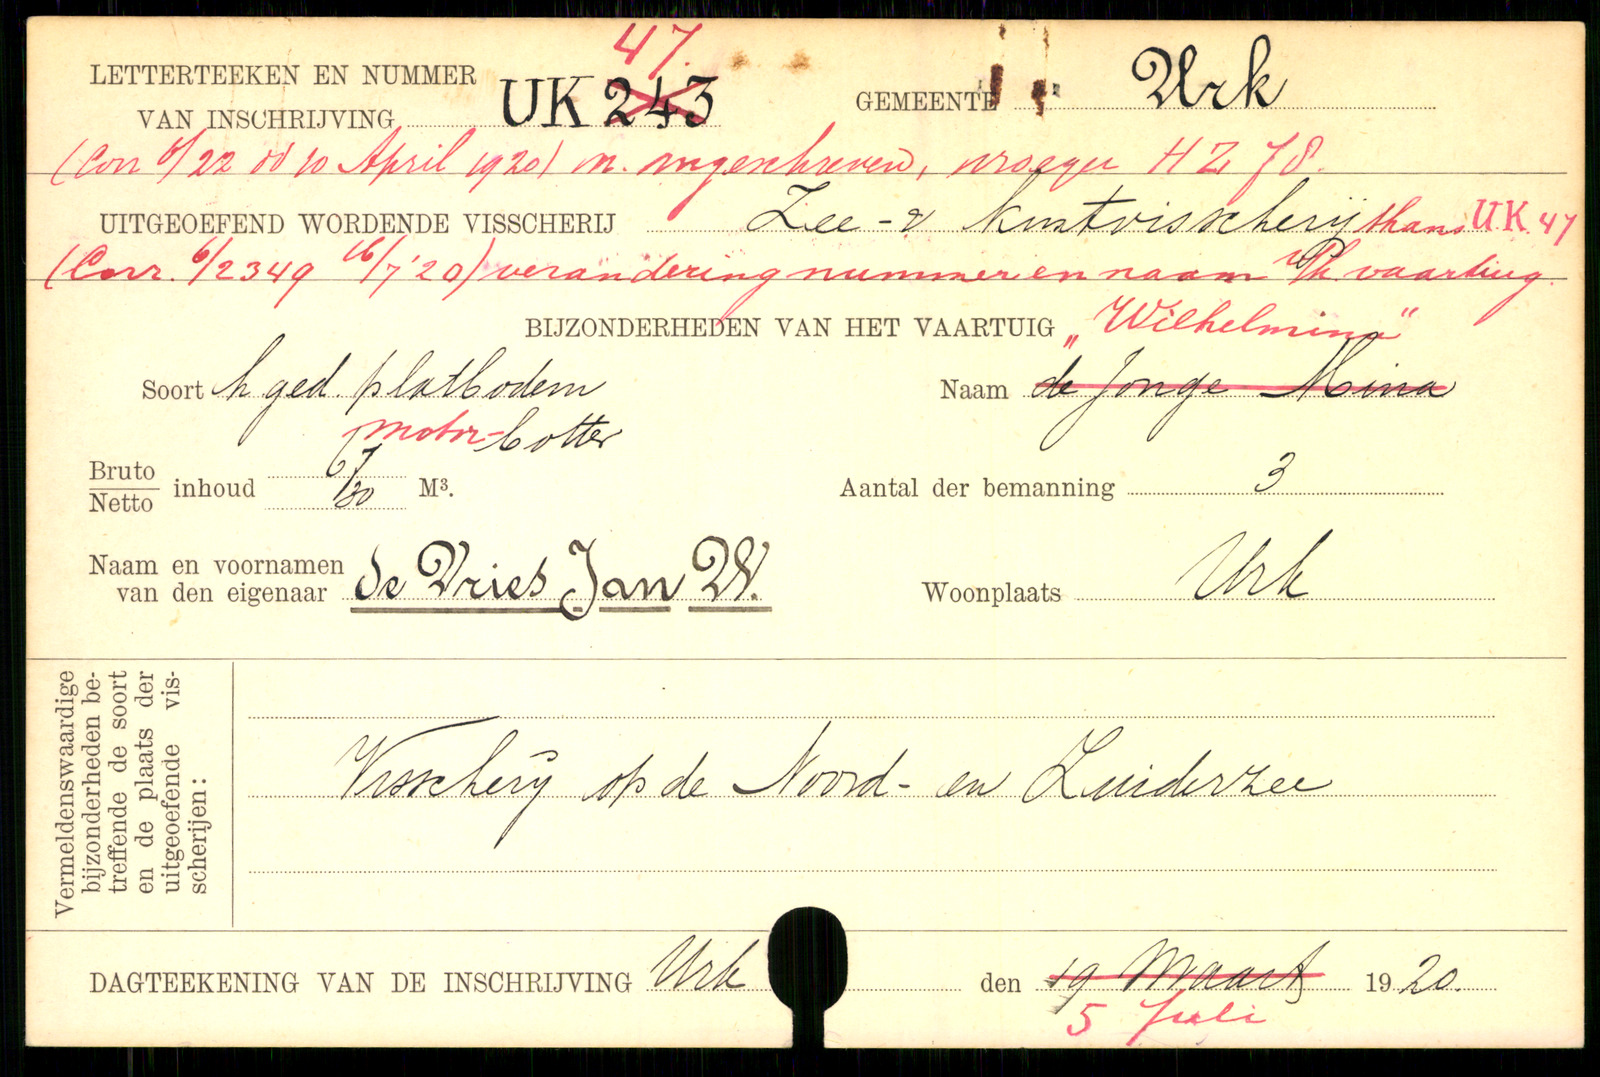 47.
LETTERTEEKEN EN NUMMER
VAN INSCHRIJVING UK 243
GEMEENTE Urk
(Corr 6/22 dd 10 April 1920) m. ingeschreven, vroeger HZ 78.
UITGEOEFEND WORDENDE VISSCHERIJ Zee- & kustvisscherij thans UK 47
(Corr. 6/2349 16/7'20) verandering nummer en naam vaartuig.
BIJZONDERHEDEN VAN HET VAARTUIG „Wilhelmina"
Soort h ged platbodem
Naam de jonge Mina
motor-botter
Bruto
Netto inhoud 67/30 M³.
Aantal der bemanning 3
Naam en voornamen
van den eigenaar de Vries Jan W.
Woonplaats Urk
Vermeldenswaardige
bijzonderheden be-
treffende de soort
en de plaats der
uitgeoefende vis-
scherijen:
Visscherij op de Noord- en Zuiderzee
DAGTEEKENING VAN DE INSCHRIJVING Urk den 19 Maart 1920.
5 Juli